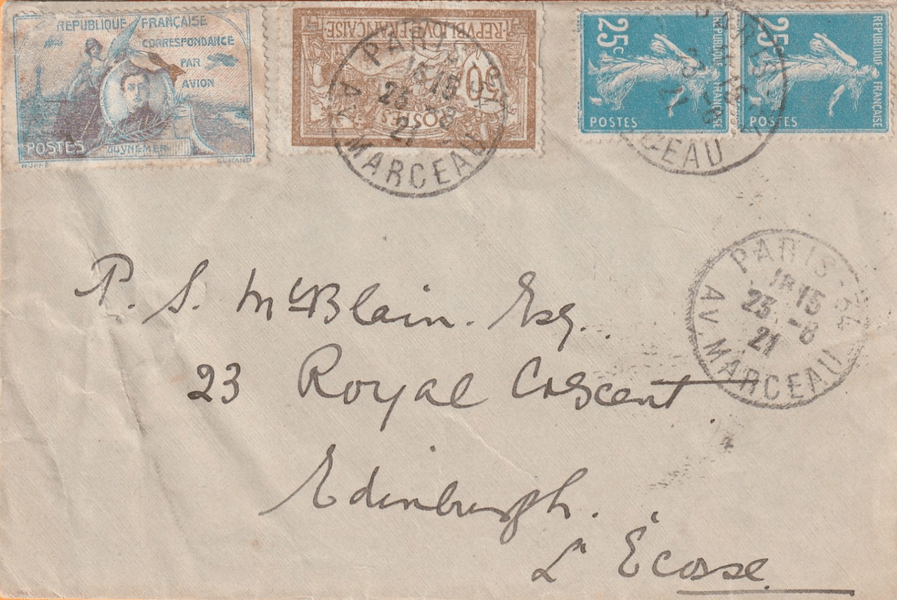 REPUBLIQUE FRANÇAISE
CORRESPONDANCE
PAR
AVION
POSTES
GUYNEMER
REPUBLIQUE FRANÇAISE
50
POSTES
PARIS
18 15
23 -8
21
AV. MARCEAU
25c
REPUBLIQUE FRANÇAISE
POSTES
25c
REPUBLIQUE FRANÇAISE
POSTES
PARIS
23 -8
21
PARIS
18 15
23 -8
21
AV. MARCEAU
P. S. McBlain. Esq.
23 Royal Crescent
Edinburgh.
L'Ecosse.